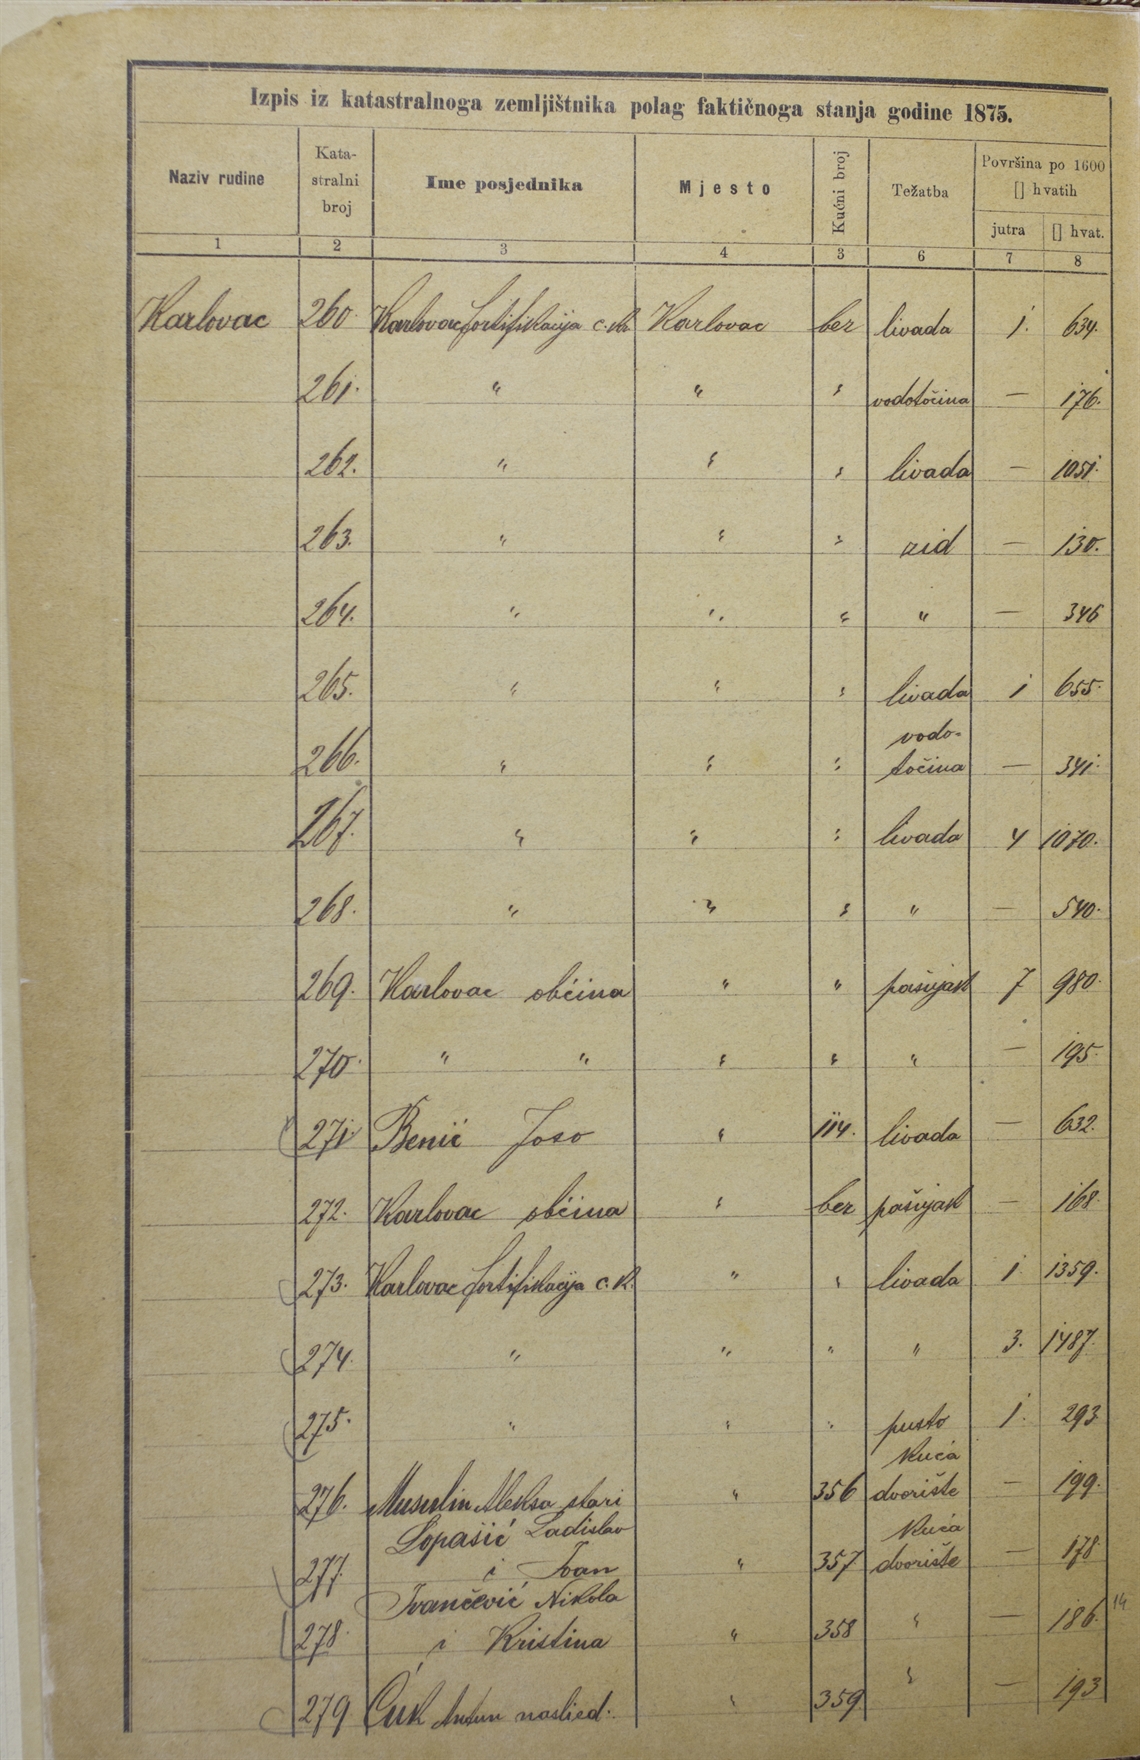 Izpis iz katastralnoga zemljištnika polag faktičnoga stanja godine 1875.
Naziv rudine Katastralni broj Ime posjednika Mjesto Kućni broj Težatba Površina po 1600 [] hvatih
jutra [] hvat.
1 2 3 4 3 6 7 8
Karlovac 260 Karlovac fortifikacija c. k. Karlovac bez livada 1. 634.
261. " " " vodotočina — 176.
262. " " " livada — 1051.
263. " " " zid — 130.
264. " " " " — 346
265. " " " livada 1 655.
266. " " " vodo-
točina — 341.
267. " " " livada 4 1070.
268. " " " " — 540.
269. Karlovac občina " " pašnjak 7 980.
270. " " " " " — 195.
271. Benić Joso " 114. livada — 632.
272. Karlovac občina " bez pašnjak — 168.
273. Karlovac fortifikacija c. k. " " livada 1 1359.
274. " " " " 3. 1487.
275. " " " pusto 1. 293
276. Musulin Aleksa stari " 356 kuća
dvorište — 199.
Lopašić Ladislav
277. i Ivan " 357 kuća
dvorište — 178
Ivančević Nikola
278. i Kristina " 358 " — 186. 14
279 Čuk Antun naslied. " 359 " — 193